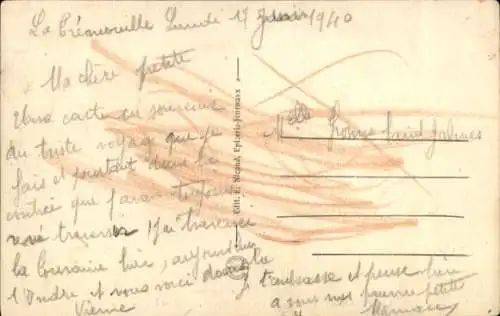 La Trémouille Lundi 17 Juin 1940
Ma chère petite
Une carte en souvenir
du triste voyage que je
fais et pourtant dans la
contrée que j'avais toujours
rêvé traverser J'ai traversé
la Touraine hier, aujourd'hui
l'Indre et nous voici dans la
Vienne
Melle
Edit. E. Nicaud, Epicerie-Journaux
je t'embrasse et pense bien
a vous ma pauvre petite